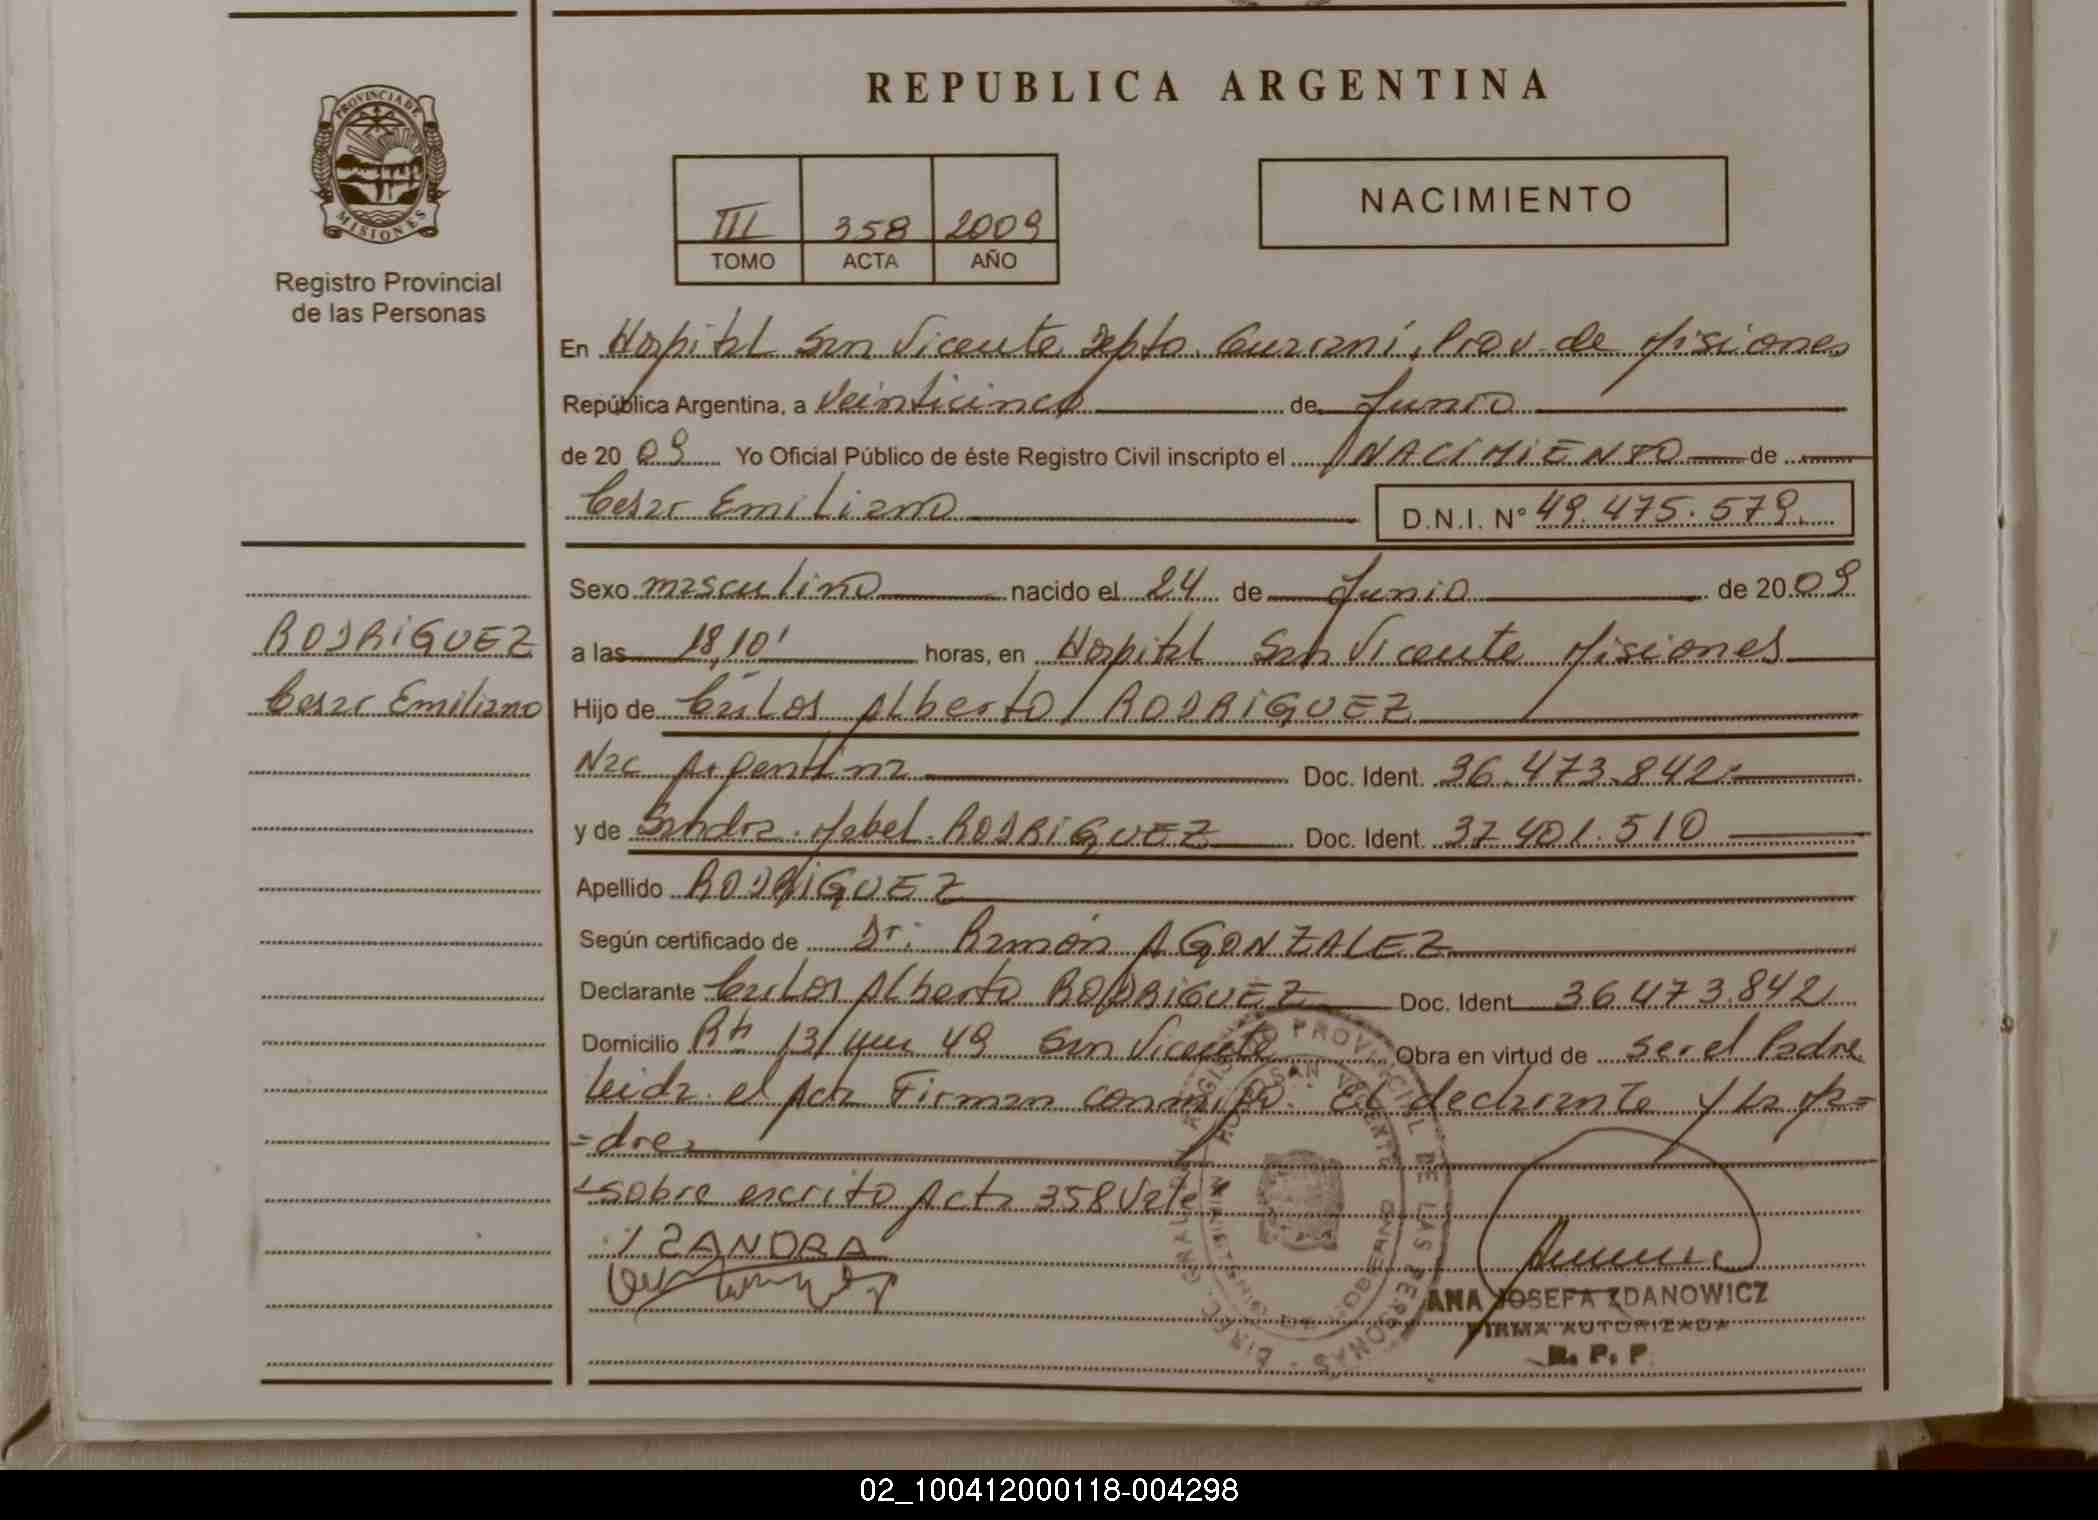 REPUBLICA ARGENTINA
PROVINCIA DE
MISIONES
Registro Provincial
de las Personas
III 358 2009
TOMO ACTA AÑO
NACIMIENTO
En Hospital San Vicente Depto. Guaraní, Prov. de Misiones
República Argentina, a Veinticinco de Junio
de 20 09 Yo Oficial Público de éste Registro Civil inscripto el NACIMIENTO de
Cesar Emiliano D.N.I. N° 49.475.579.
Sexo masculino nacido el 24 de Junio de 20 09
RODRIGUEZ
Cesar Emiliano
a las 18,10' horas, en Hospital San Vicente Misiones
Hijo de Carlos Alberto RODRIGUEZ
Nac Argentina Doc. Ident. 36.473.842
y de Sandra Mabel RODRIGUEZ Doc. Ident. 37.401.510
Apellido RODRIGUEZ
Según certificado de Dr: Ramón A GONZALEZ
Declarante Carlos Alberto RODRIGUEZ Doc. Ident 36.473.842
Domicilio 13 49 San Vicente Obra en virtud de ser el Padre
leida el Acta Firman conmigo: El declarante y la Ma=
=dre
sobre escrito Acta 358 Vale
ZANDRA
DIREC. GRAL. REGISTRO PROVINCIAL DE LAS PERSONAS
SAN VICENTE
ANA JOSEFA ZDANOWICZ
FIRMA AUTORIZADA
R. P. P.
02_100412000118-004298